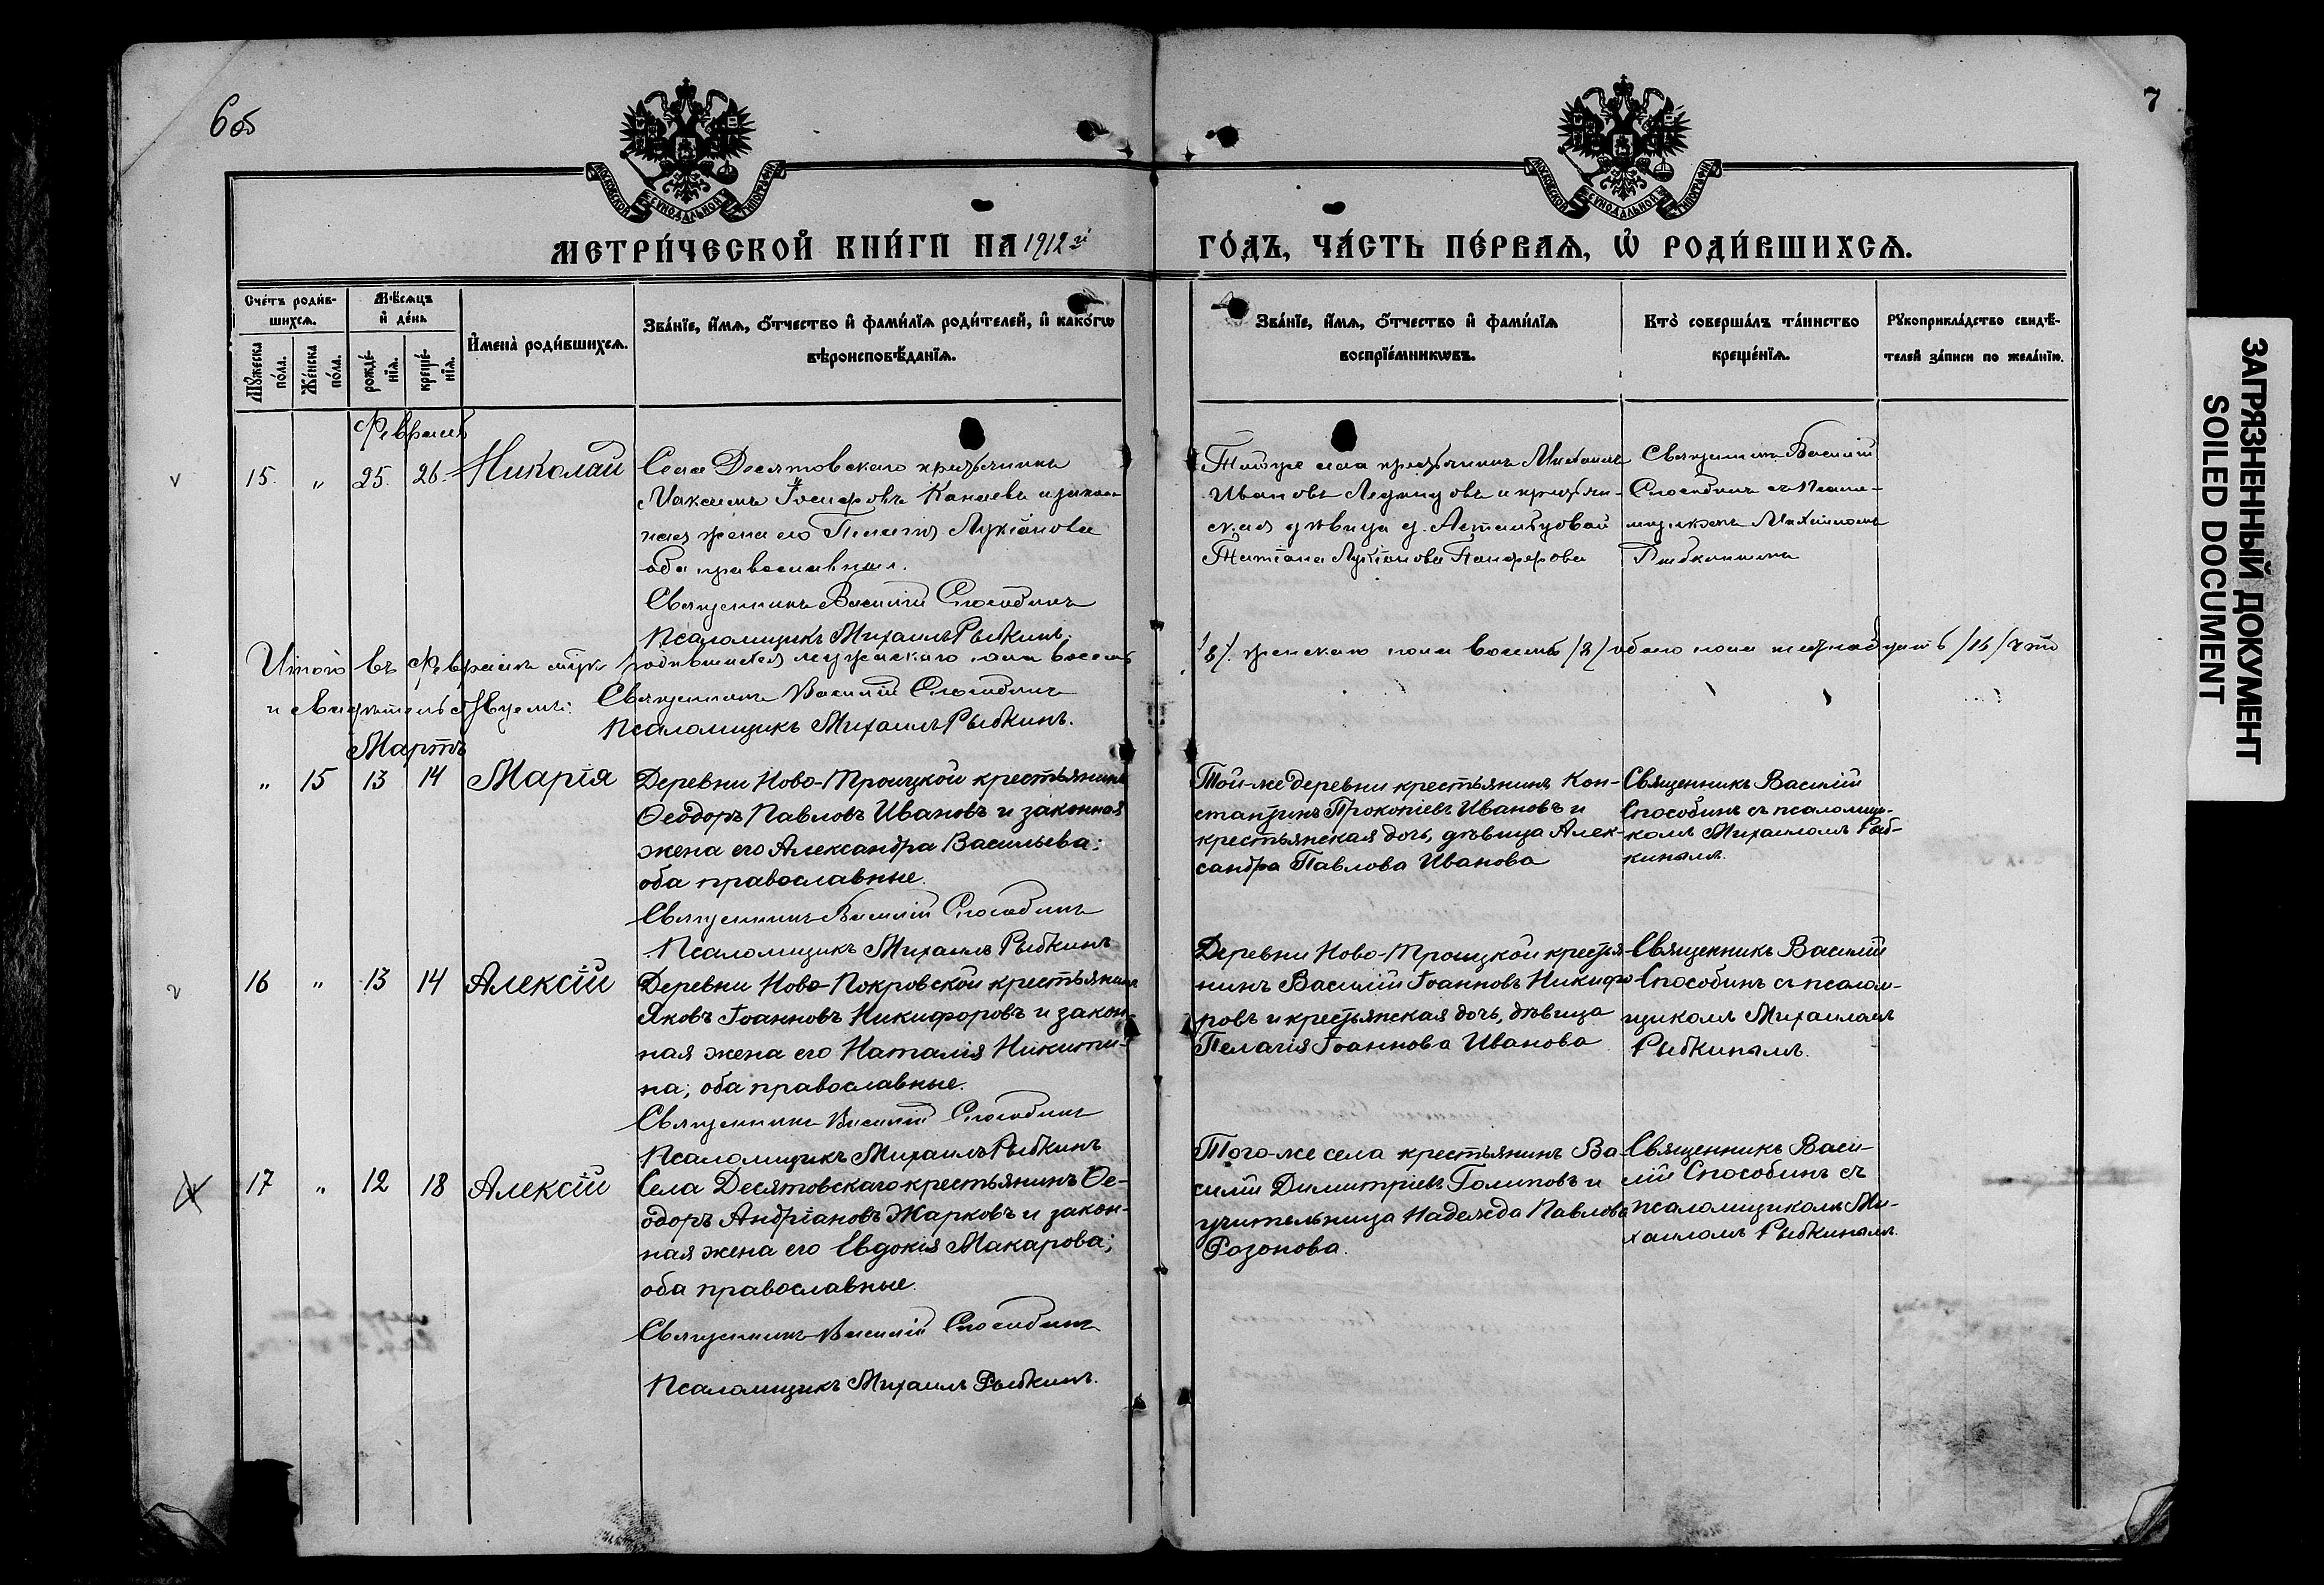 6 об
7
МОСКОВСКОЙ СѴНОДАЛЬНОЙ ТИПОГРАФІИ
МОСКОВСКОЙ СѴНОДАЛЬНОЙ ТИПОГРАФІИ
МЕТРИ́ЧЕСКОЙ КНИ́ГИ НА 1912й
ГО́ДЪ, ЧА́СТЬ ПЕ́РВАѦ, Ѡ҆ РОДИ́ВШИХСѦ.
Сче́тъ роди́в-
шихсѧ.
Мꙋ́жеска по́ла.
Же́нска по́ла.
Мѣ́сѧцъ
и҆ де́нь
рожде́-
нїѧ.
креще́-
нїѧ.
И҆мена̀ роди́вшихсѧ.
Зва́нїе, и҆́мѧ, ѻ҆́тчество и҆ фами́лїѧ роди́телей, и҆ како́гѡ
вѣроисповѣ́данїѧ.
Зва́нїе, и҆́мѧ, ѻ҆́тчество и҆ фами́лїѧ
воспрїе́мникѡвъ.
Кто̀ соверша́лъ та́инство
креще́нїѧ.
Рꙋкоприкла́дство свидѣ́-
телей за́писи по жела́нїю.
Февраль
15. „ 25. 26. Николай
Села Десятовскаго крестьянинъ
Максимъ Іосифовъ Канаевъ и закон-
ная жена его Лукіанова
оба православныя.
Священникъ Василій Способинъ
Псаломщикъ Михаилъ Рыбкинъ.
Того же села крестьянинъ Михаилъ
Ивановъ и крестьян-
ская дѣвица д.
Татіана Лукіанова Панферова
Священникъ Василій
Способинъ съ псалом-
щикомъ Михаиломъ
Рыбкинымъ
Итого въ Февралѣ мѣс. родившихся мужскаго пола восемь
/8/. женскаго пола восемь /8/ обоего пола шестнадцать /16/ что
и свидѣтельствуемъ: Священникъ Василій Способинъ
Псаломщикъ Михаилъ Рыбкинъ.
Мартъ
„ 15 13 14 Марія
Деревни Ново-Троицкой крестьянинъ
Ѳеодоръ Павловъ Ивановъ и законная
жена его Александра Васильева;
оба православные.
Священникъ Василій Способинъ
Псаломщикъ Михаилъ Рыбкинъ
Той-же деревни крестьянинъ Кон-
стантинъ Прокопіевъ Ивановъ и
крестьянская дочь, дѣвица Алек-
сандра Павлова Иванова
Священникъ Василій
Способинъ съ псаломщи-
комъ Михаиломъ Рыб-
кинымъ.
16 „ 13 14 Алексій
Деревни Ново-Покровской крестьянинъ
Яковъ Іоанновъ Никифоровъ и закон-
ная жена его Наталія Никити-
на; оба православные.
Священникъ Василій Способинъ
Псаломщикъ Михаилъ Рыбкинъ
Деревни Ново-Троицкой крестья-
нинъ Василій Іоанновъ Никифо
ровъ и крестьянская дочь, дѣвица
Пелагія Іоаннова Иванова
Священникъ Василій
Способинъ съ псалом-
щикомъ Михаиломъ
Рыбкинымъ.
17 „ 12 18 Алексій
Села Десятовскаго крестьянинъ Ѳе-
одоръ Андріановъ Жарковъ и закон-
ная жена его Евдокія Макарова;
оба православные.
Священникъ Василій Способинъ
Псаломщикъ Михаилъ Рыбкинъ.
Того-же села крестьянинъ Ва-
силій Димитріевъ Голиповъ и
учительница Надежда Павлова
Розонова.
Священникъ Васи-
лій Способинъ съ
псаломщикомъ Ми-
хаиломъ Рыбкинымъ.
ЗАГРЯЗНЕННЫЙ ДОКУМЕНТ
SOILED DOCUMENT